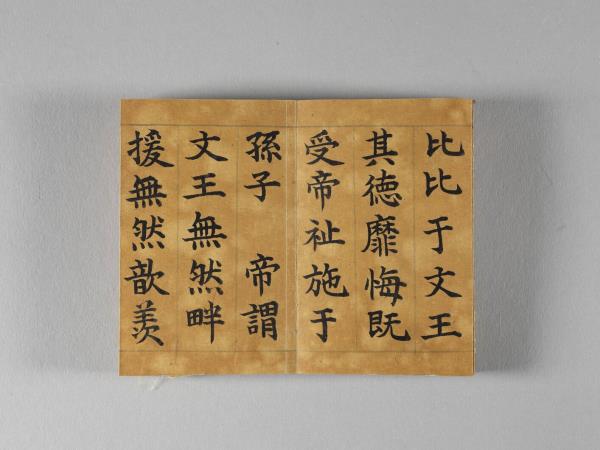 比比于文王
其德靡悔既
受帝祉施于
孫子　帝謂
文王無然畔
援無然歆羨